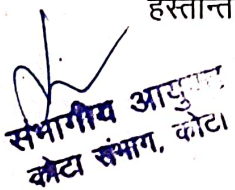 हस्तान्त
संभागीय
कोटा संभाग, कोटा।